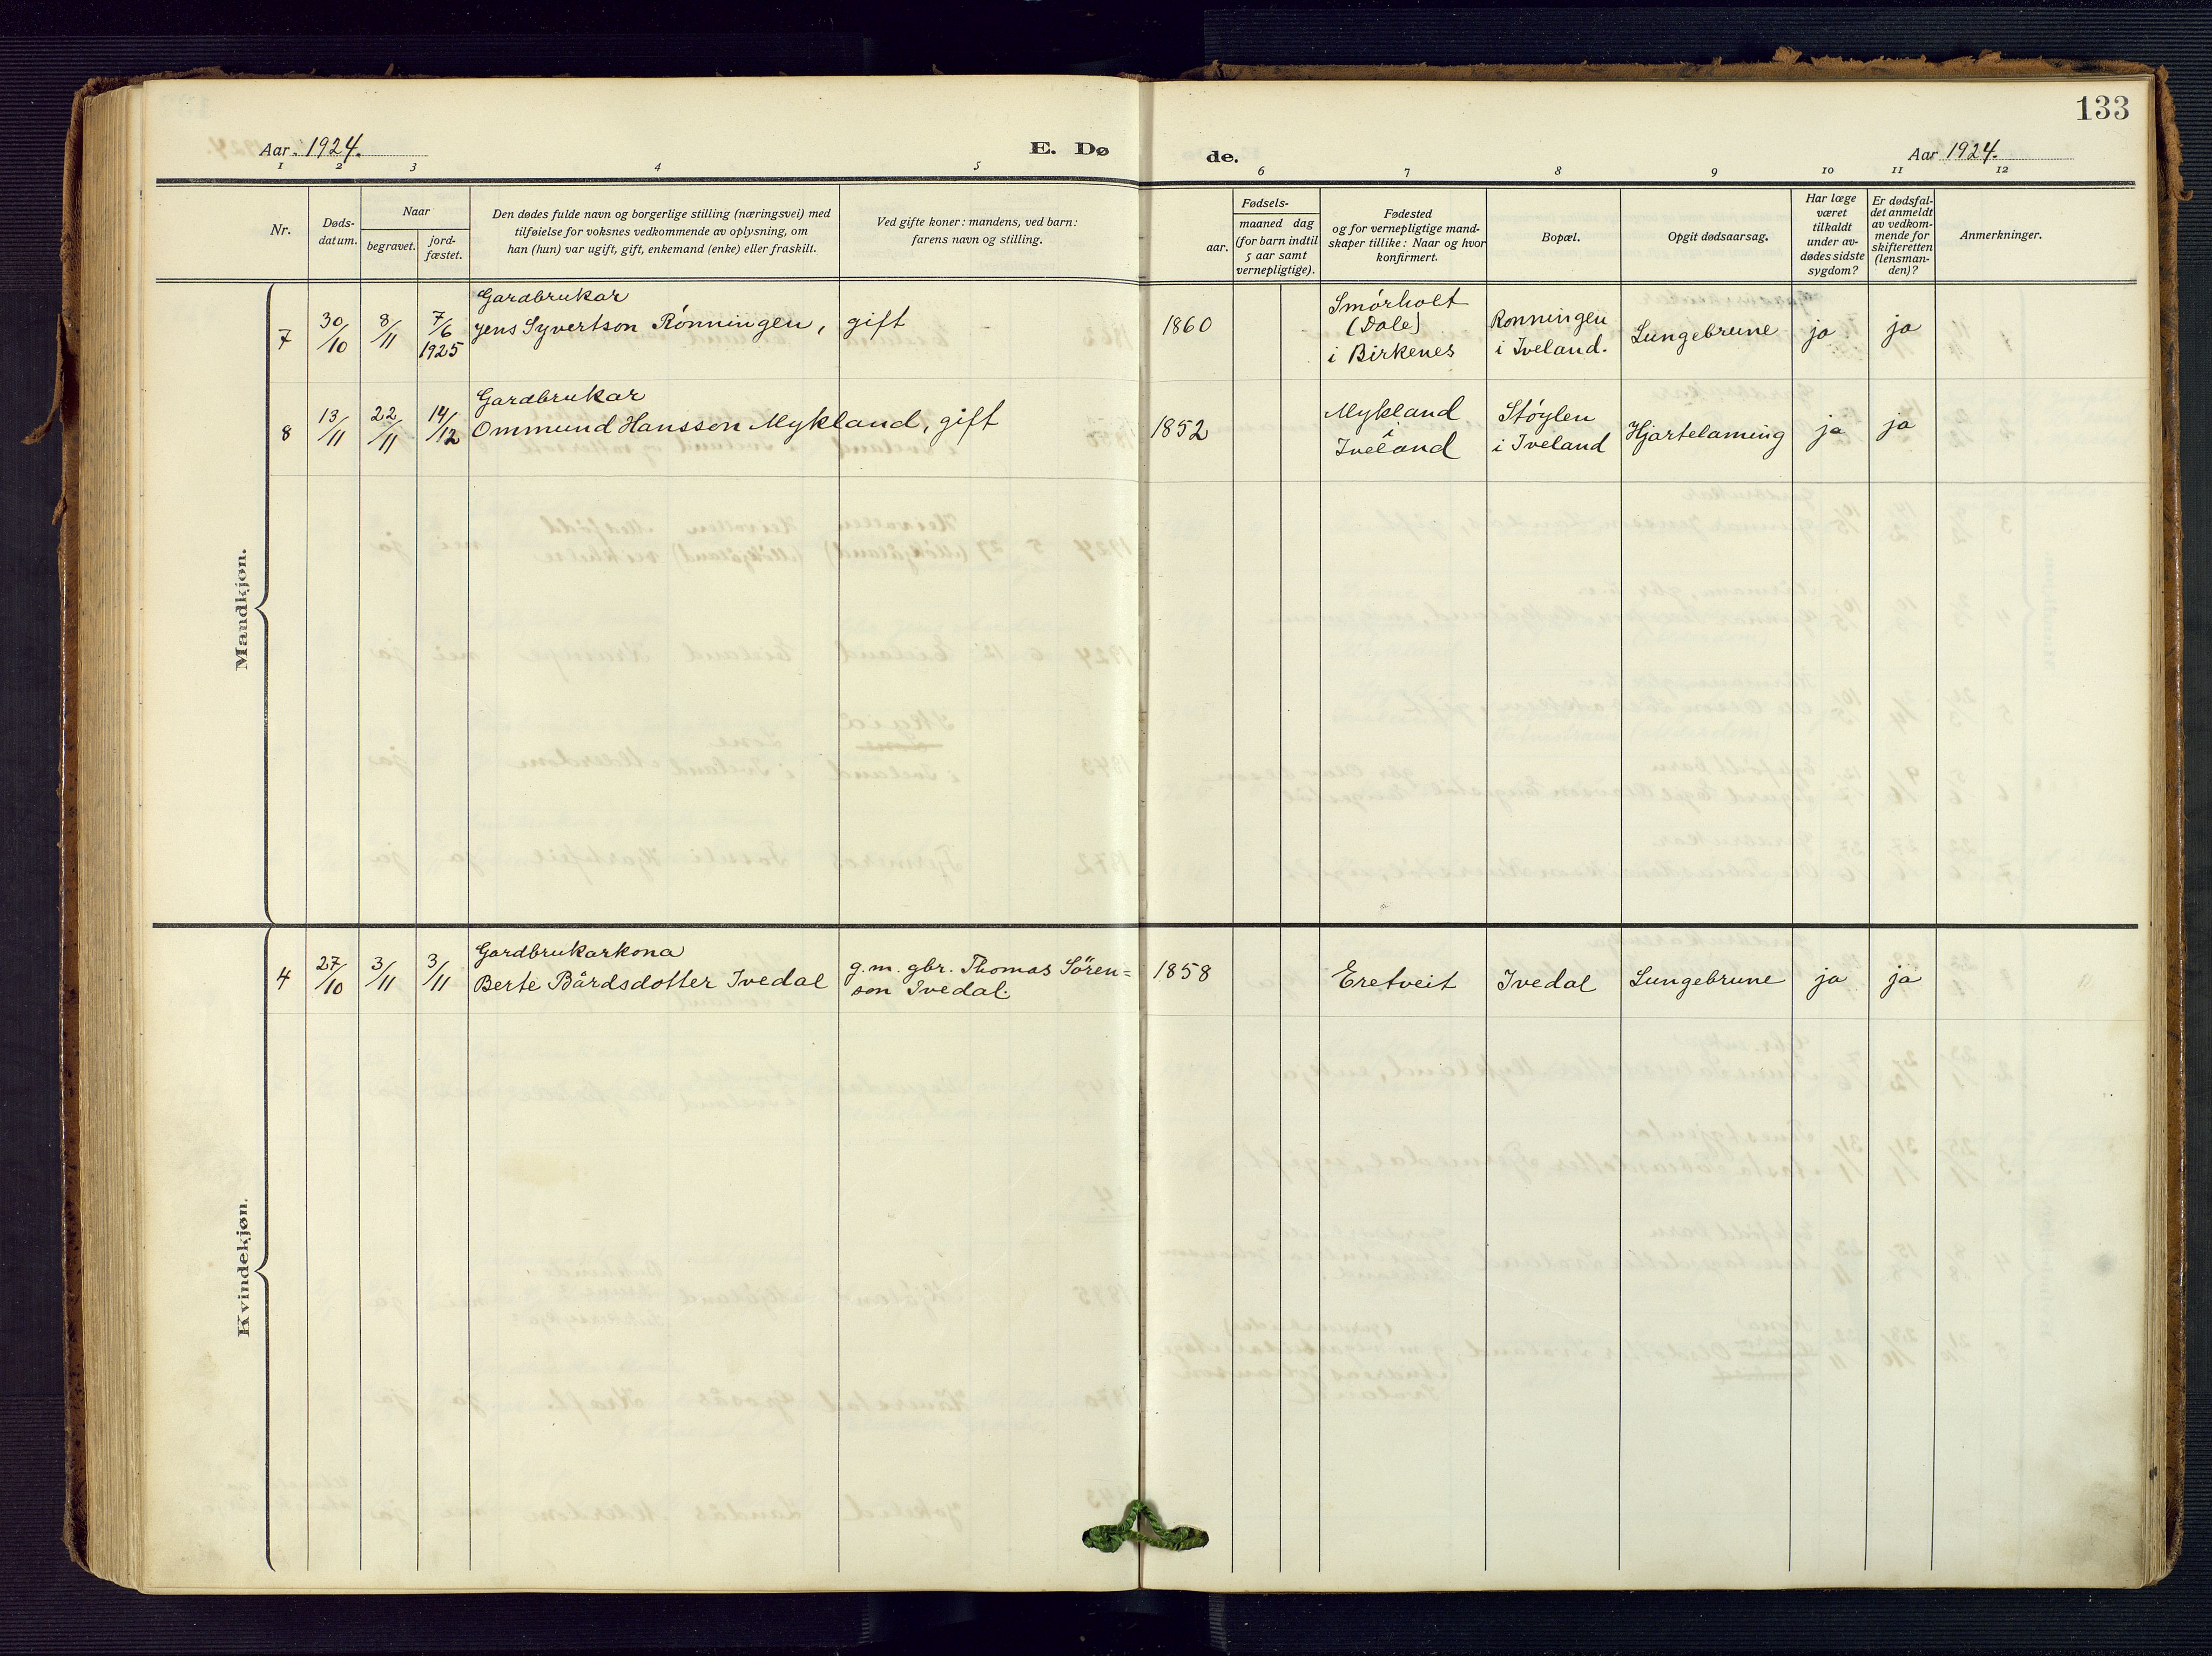 133
Aar 1924.
E. Dø
de.
Aar 1924.
1 2 3 4 5 6 7 8 9 10 11 12
Nr.
Døds-
datum.
Naar
begravet.
jord-
fæstet.
Den dødes fulde navn og borgerlige stilling (næringsvei) med
tilføielse for voksnes vedkommende av oplysning, om
han (hun) var ugift, gift, enkemand (enke) eller fraskilt.
Ved gifte koner: mandens, ved barn:
farens navn og stilling.
Fødsels-
aar.
maaned dag
(for barn indtil
5 aar samt
vernepligtige).
Fødested
og for vernepligtige mand-
skaper tillike: Naar og hvor
konfirmert.
Bopæl.
Opgit dødsaarsag.
Har læge
været
tilkaldt
under av-
dødes sidste
sygdom?
Er dødsfal-
det anmeldt
av vedkom-
mende for
skifteretten
(lensman-
den)?
Anmerkninger.
Mandkjøn.
7
30/10
8/11
7/6
1925
Gardbrukar
Jens Syvertson Rønningen, gift
1860
Smørholt
(Dale)
i Birkenes
Rønningen
i Iveland.
Lungebrune
ja
ja
8
13/11
22/11
14/12
Gardbrukar
Ommund Hansson Mykland, gift
1852
Mykland
i
Iveland
Støylen
i Iveland
Hjartelaming
ja
ja
Kvindekjøn.
4
27/10
3/11
3/11
Gardbrukarkona
Berte Bårdsdotter Ivedal
g.m. gbr. Thomas Sören=
son Ivedal.
1858
Eretveit
Ivedal
Lungebrune
ja
ja